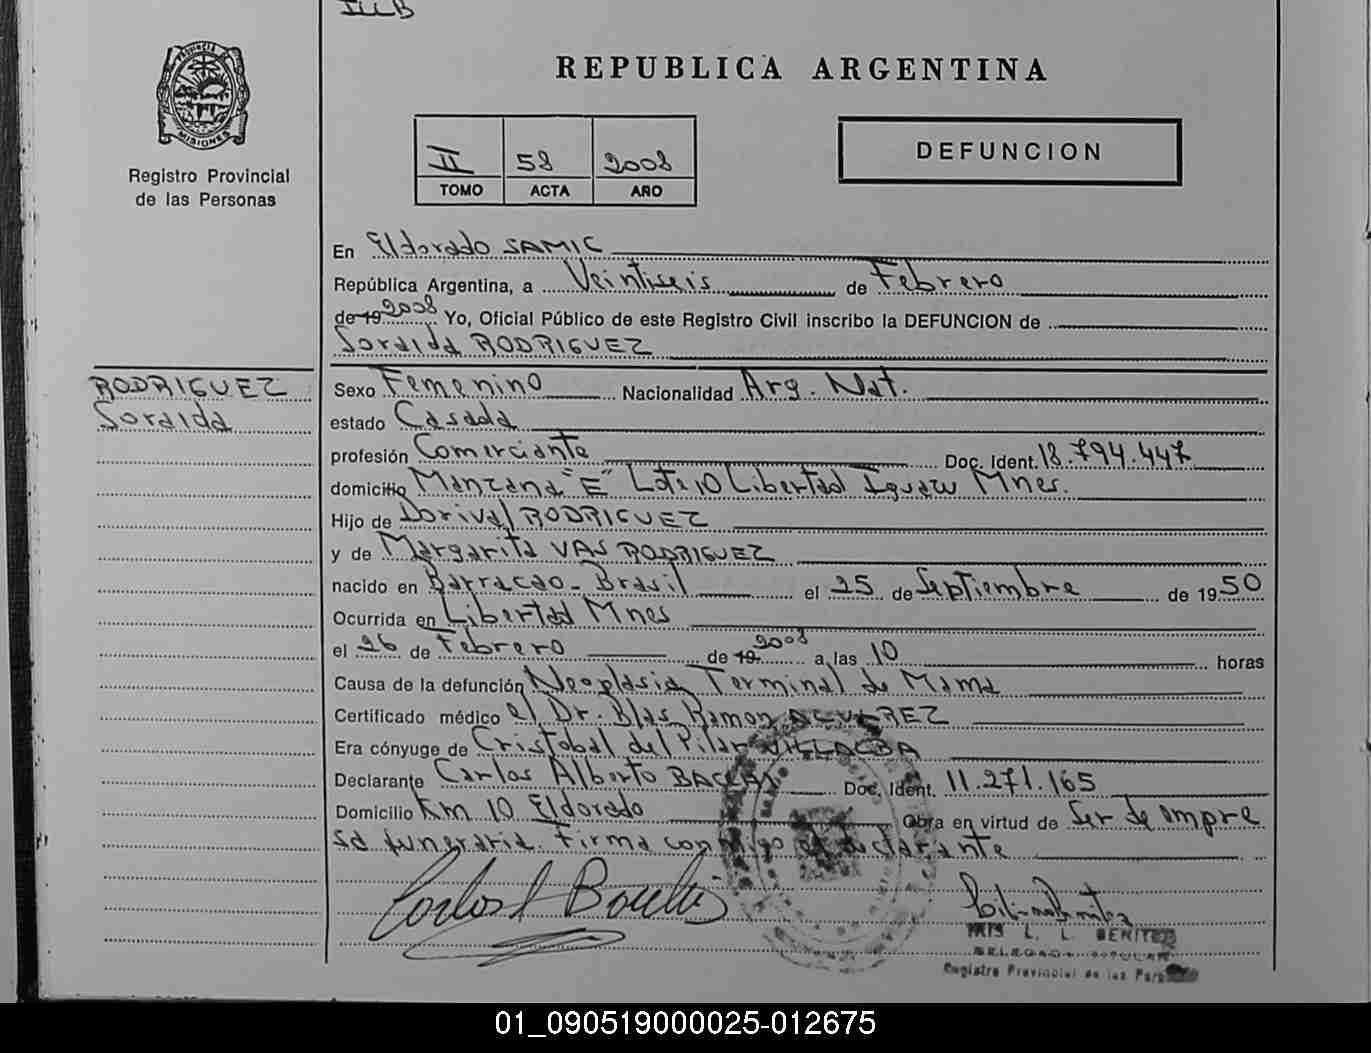 REPUBLICA ARGENTINA
PROVINCIA DE
MISIONES
Registro Provincial
de las Personas
II 58 2008
TOMO ACTA AÑO
DEFUNCION
En Eldorado SAMIC
República Argentina, a Veintiseis de Febrero
de 19 2008 Yo, Oficial Público de este Registro Civil inscribo la DEFUNCION de
Soraida RODRIGUEZ
RODRIGUEZ
Soraida
Sexo Femenino Nacionalidad Arg. Nat.
estado Casada
profesión Comerciante Doc. Ident. 18.794.447
domicilio Manzana "E" Lote 10 Libertad Iguazu Mnes.
Hijo de Dorival RODRIGUEZ
y de Margarita VAS RODRIGUEZ
nacido en Barracao - Brasil el 25 de Septiembre de 1950
Ocurrida en Libertad Mnes
el 26 de Febrero de 19 2008 a las 10 horas
Causa de la defunción Neoplasia Terminal de Mama
Certificado médico el Dr. Blas Ramon
Era cónyuge de Cristobal del Pilar VILLALBA
Declarante Carlos Alberto Doc. Ident. 11.271.165
Domicilio Km 10 Eldorado Obra en virtud de Ser de empre
sa funeraria. Firma conmigo el declarante
L. L. BENITEZ
Registro Provincial de las Pers
01_090519000025-012675